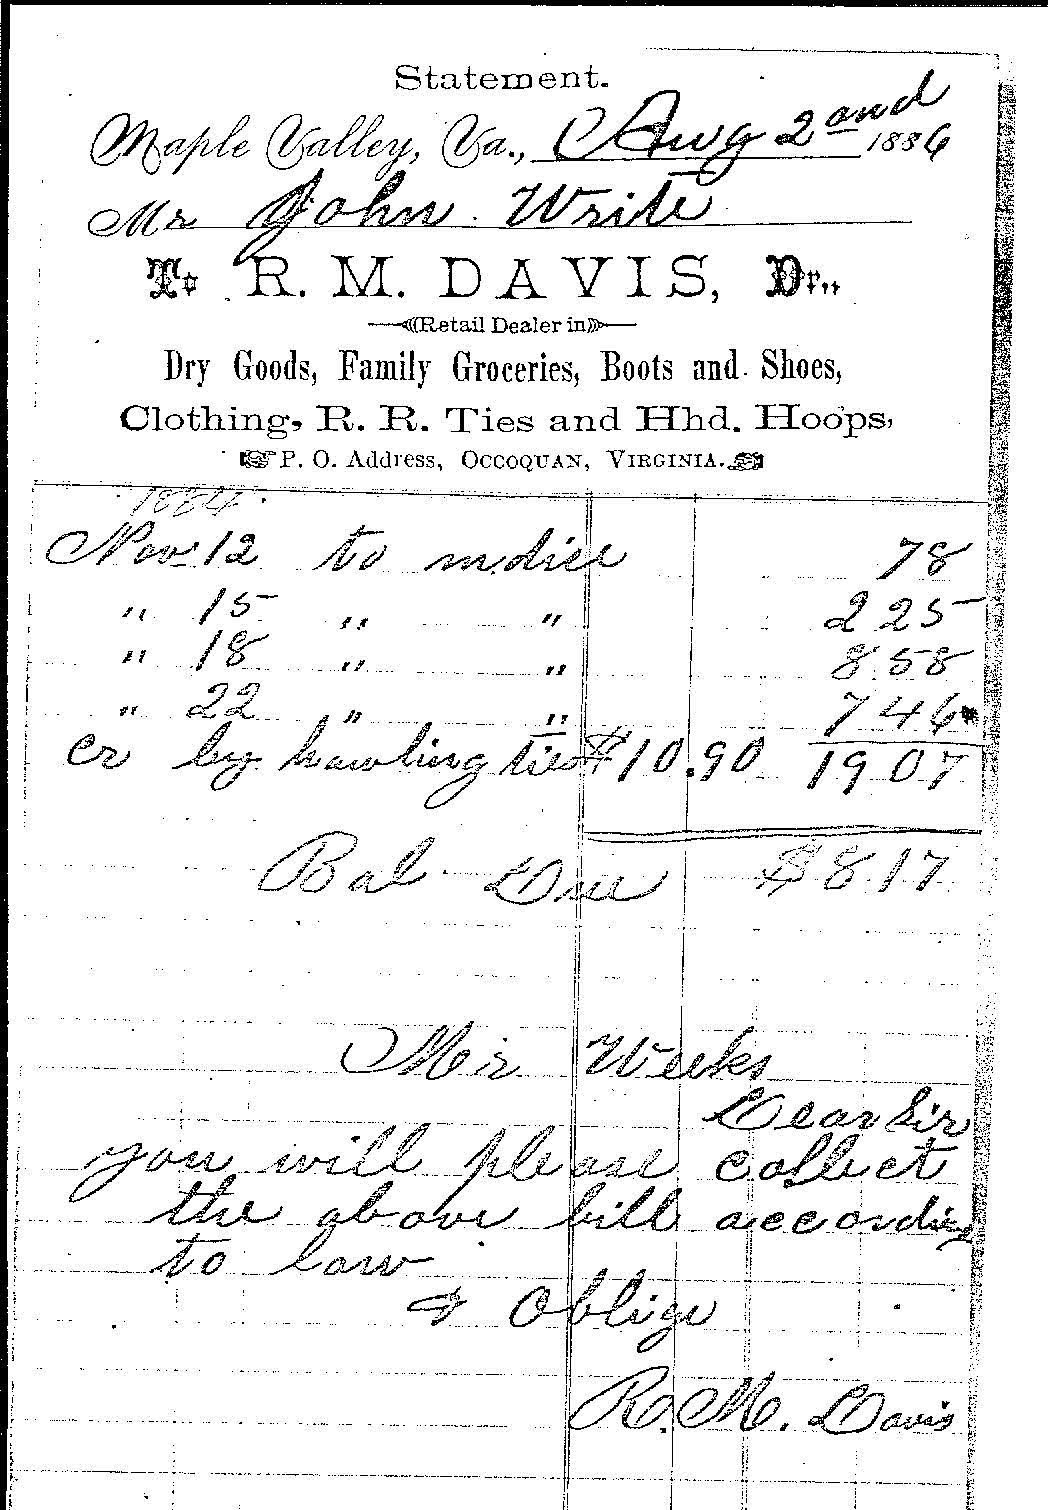 Statement.
Maple Valley, Va., Aug 2and 1886
Mr John Write
To R. M. DAVIS, Dr.,
Retail Dealer in
Dry Goods, Family Groceries, Boots and Shoes,
Clothing, R. R. Ties and Hhd. Hoops,
P. O. Address, Occoquan, Virginia.
1884
Nov 12 to mdise 78
" 15 " " 2 25
" 18 " " 8 58
" 22 " " 7 46
Cr by hawling ties $10.90 19 07
Bal Due $8 17
Mr Weeks
Dear Sir
you will please collect
the above bill according
to law
& Oblige
R. M. Davis